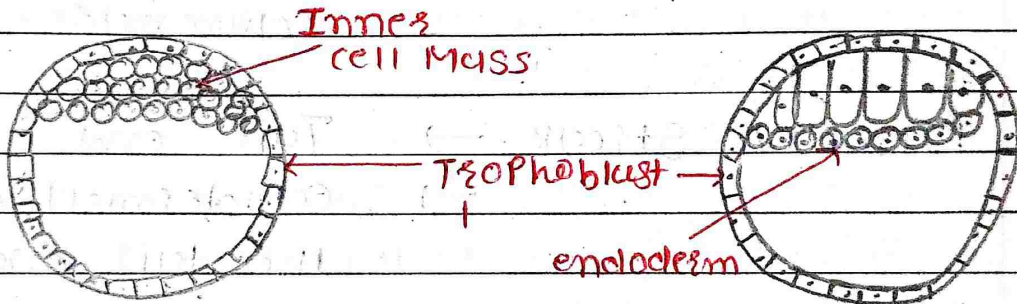 Inner
cell Mass
Trophoblast
endoderm